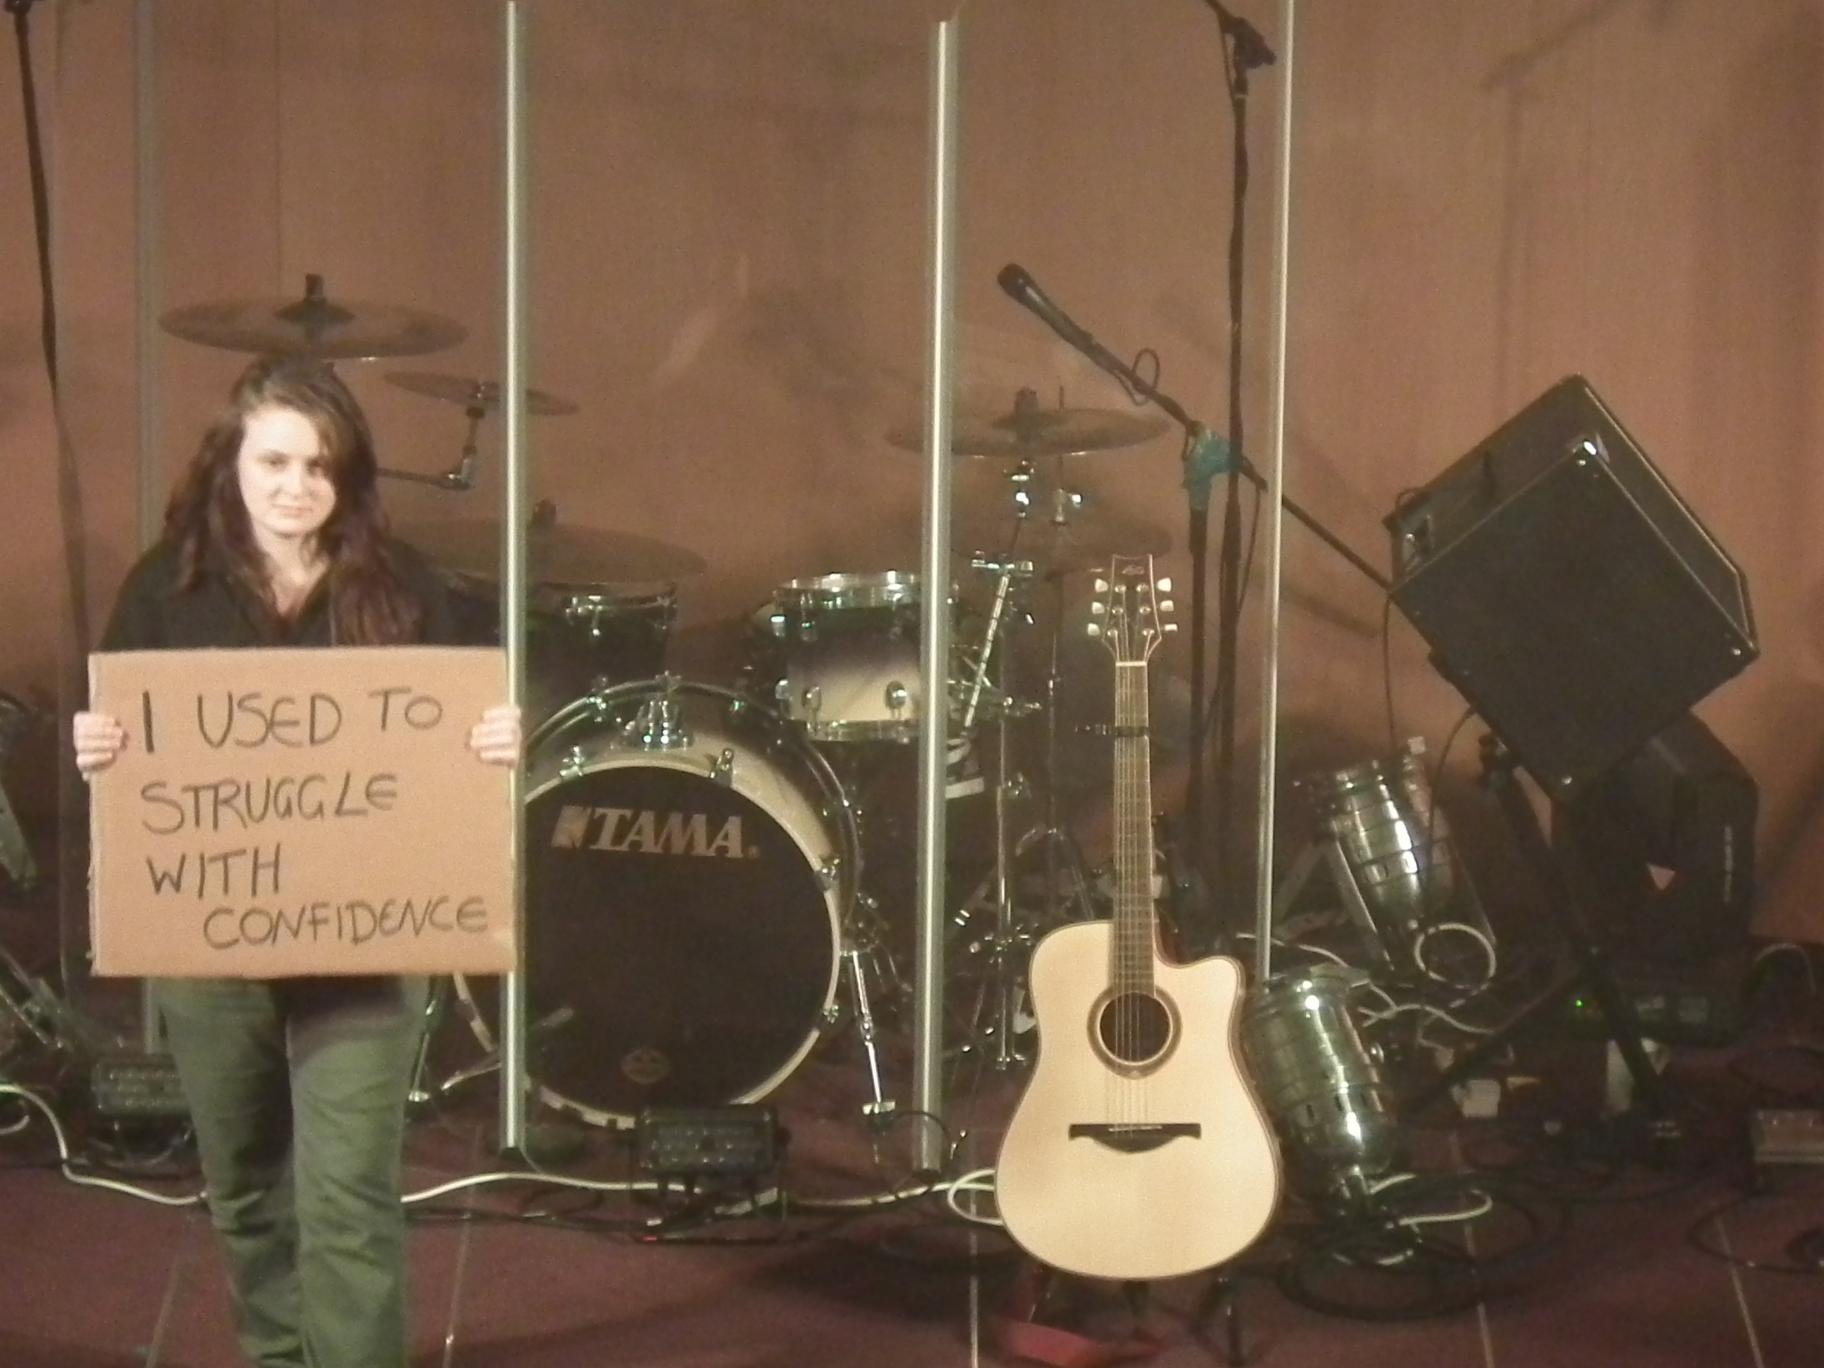 I USED TO
STRUGGLE
WITH
CONFIDENCE
TAMA